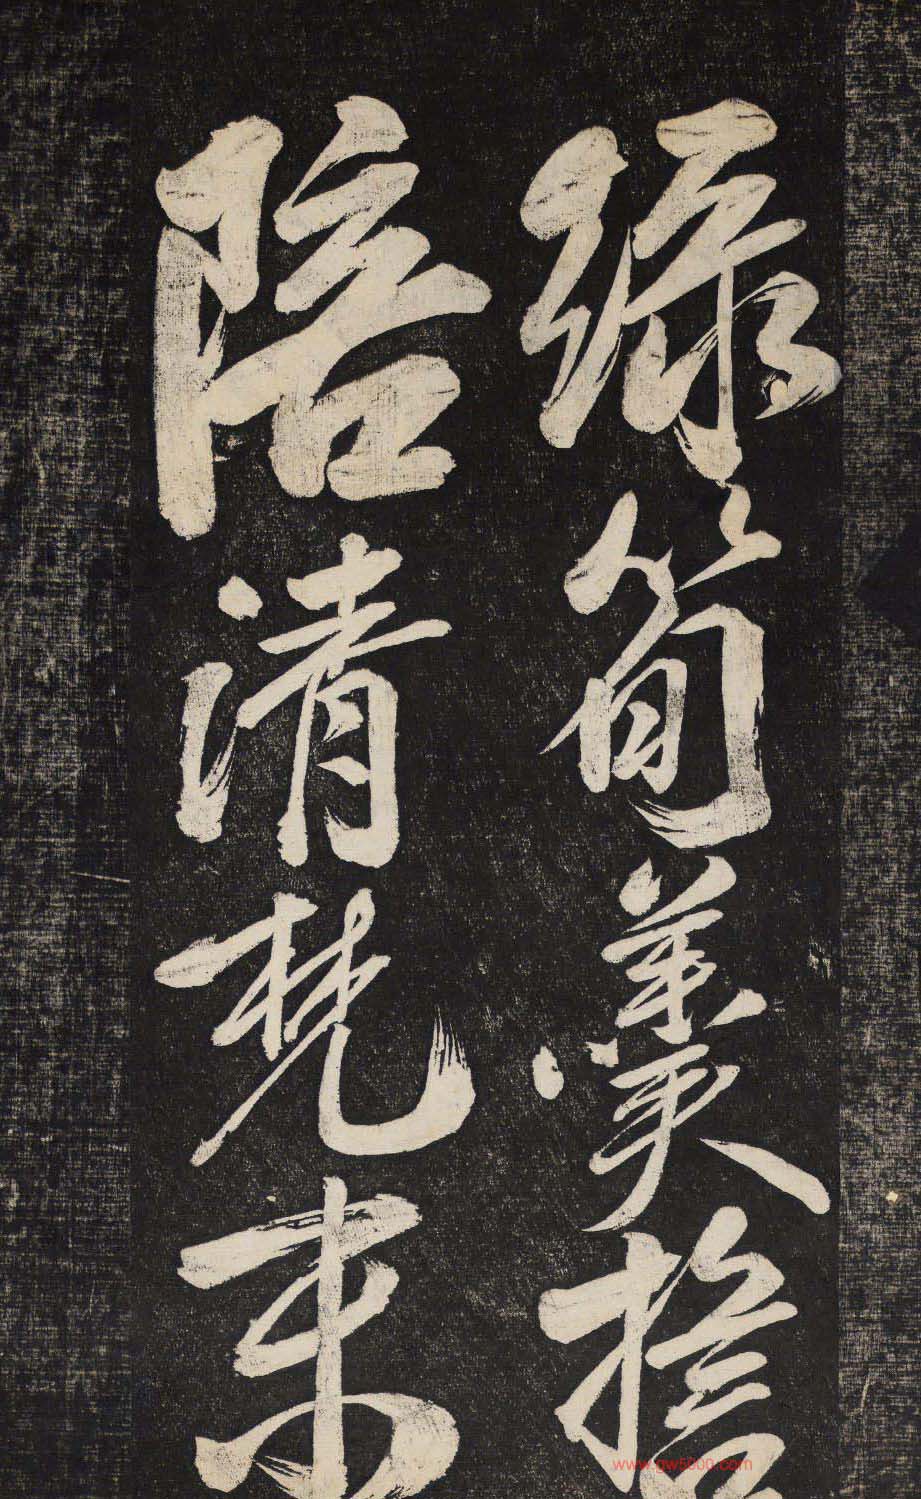 緑筍羹捨
陪清梵末
www.gw5000.com